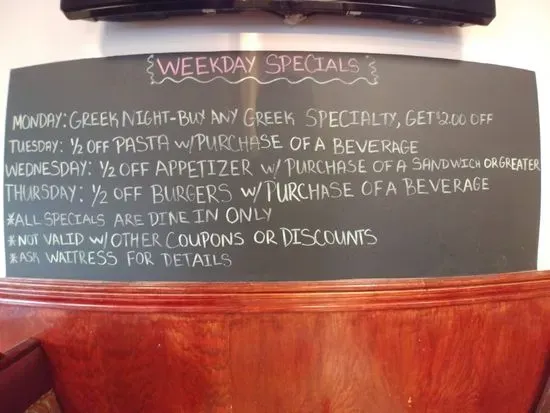 WEEKDAY SPECIALS
MONDAY: GREEK NIGHT-BUY ANY GREEK SPECIALTY, GET $2.00 OFF
TUESDAY: ½ OFF PASTA W/PURCHASE OF A BEVERAGE
WEDNESDAY: ½ OFF APPETIZER W/ PURCHASE OF A SANDWICH OR GREATER
THURSDAY: ½ OFF BURGERS W/ PURCHASE OF A BEVERAGE
*ALL SPECIALS ARE DINE IN ONLY
*NOT VALID W/OTHER COUPONS OR DISCOUNTS
*ASK WAITRESS FOR DETAILS